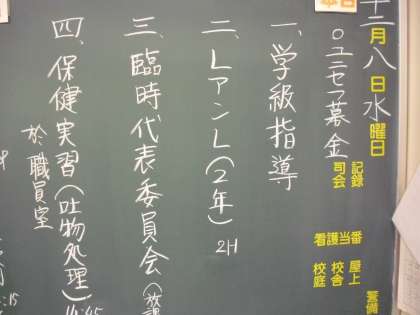 本日
十二月八日水曜日
〇ユニセフ募金
記録
司会
看護当番
屋上
校舎
校庭
警備
一、学級指導
二、LアンL(2年)
2H
三、臨時代表委員会(放課
四、保健実習(吐物処理)
於職員室
14:45
:15